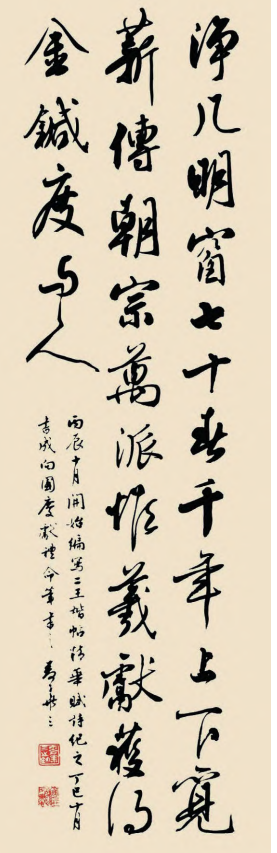 淨几明窗七十春千年上下覓
薪傳朝宗萬派惟羲獻獲得
金鍼度與人
丙辰十月開始編寫二王楷帖精華賦詩紀之丁巳十月
書成向國慶獻禮命筆